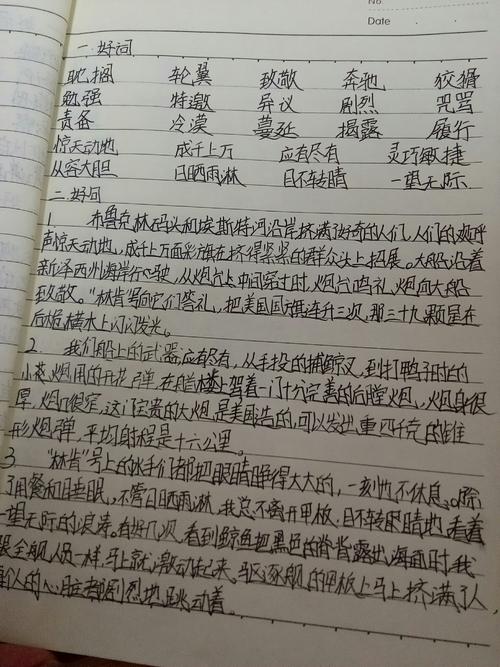 No
Date
一.好词
耽搁 轮翼 致敬 奔驰 狡猾
勉强 特邀 异议 剧烈 咒骂
责备 冷漠 蔓延 揭露 履行
惊天动地 成千上万 应有尽有 灵巧敏捷
从容大胆 日晒雨淋 目不转睛 一望无际
二.好句
1. 布鲁克林码头和埃斯特河沿岸挤满了好奇的人们,人们的欢呼
声惊天动地,成千上万面彩旗在挤得紧紧的群众头上招展。大船沿着
新泽西州海岸行驶,从炮台中间穿过时,炮台鸣礼炮向大船
致敬。“林肯”号向它们答礼,把美国国旗连升三次,那三十九颗星在
后桅横木上闪闪发光。
2. 我们船上的武器应有尽有,从手投的捕鲸叉,到打鸭子时的
炮用的开花弹,在船楼上驾着一门十分完善的后膛炮,炮身很
厚,炮口很窄,这门宝贵的大炮,是美国造的,可以发出重四千克的锥
形炮弹,平均射程是十六公里。
3. “林肯”号上的水手们都把眼睛睁得大大的,一刻也不休息。除
了用餐和睡眠,不管日晒雨淋,我总不离开甲板,目不转睛地看着
一望无际的浪涛。有好几次,看到鲸鱼把黑色的脊背露出海面时,我
全舰人员一样,马上就激动起来。驱逐舰的甲板上马上挤满了人
人的心脏都剧烈地跳动着。